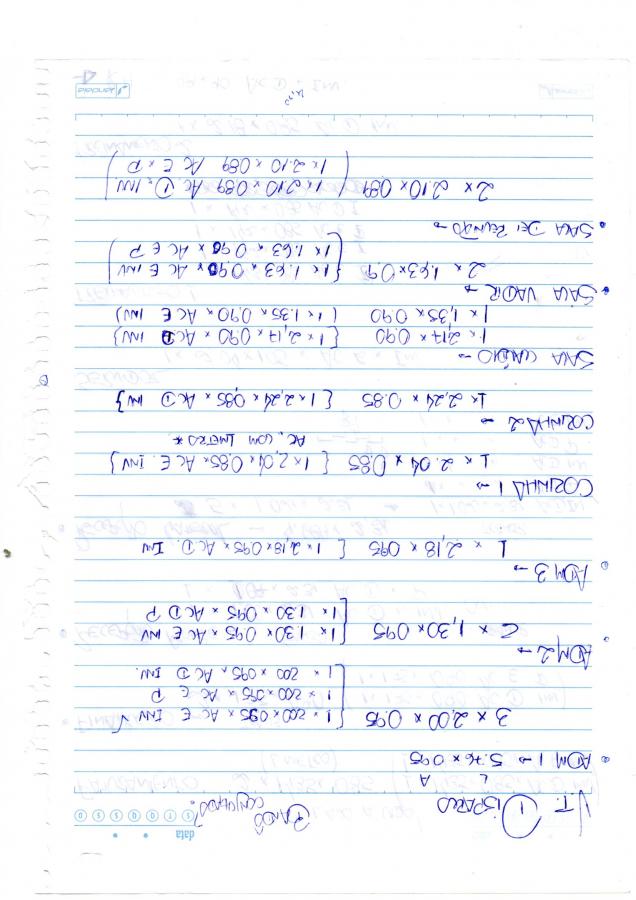 data
S T Q Q S S D
BANDÔ
CONJUGADO?
L A
ADM 1 → 5.76 x 0.95
3 x 2,00 x 0.95 { 1 x 200 x 0.95 x AC E INV
1 x 200 x 095 x AC E P
1 x 200 x 095 x AC D INV.
ADM 2 →
2 x 1,30 x 095 1 x 1.30 x 095 x AC E INV
1 x 1.30 x 095 x AC D P
ADM 3 →
1 x 2,18 x 095 [ 1 x 2,18 x 095 x AC D. INV
COZINHA 1 →
1 x 2.04 x 0,85 { 1 x 2,04 x 0.85 x AC E. INV }
AC. COM 1 METRO *
COZINHA 2 →
1 x 2.24 x 0.85 { 1 x 2,24 x 0,85 x AC D INV }
SALA →
1 x 2,17 x 0.90 { 1 x 2,17 x 0.90 x AC D INV }
1 x 1,35 x 0.90 { 1 x 1.35 x 0.90 x AC E INV }
SALA VADIR →
2 x 1.63 x 0.9 { 1 x 1.63 x 0.90 x AC E INV
1 x 1.63 x 0.90 x AC E P
SALA DE REUNIÃO →
2 x 2.10 x 0.89 ( 1 x 2.10 x 0.89 AC. D. INV
1 x 2.10 x 089 AC E x P )